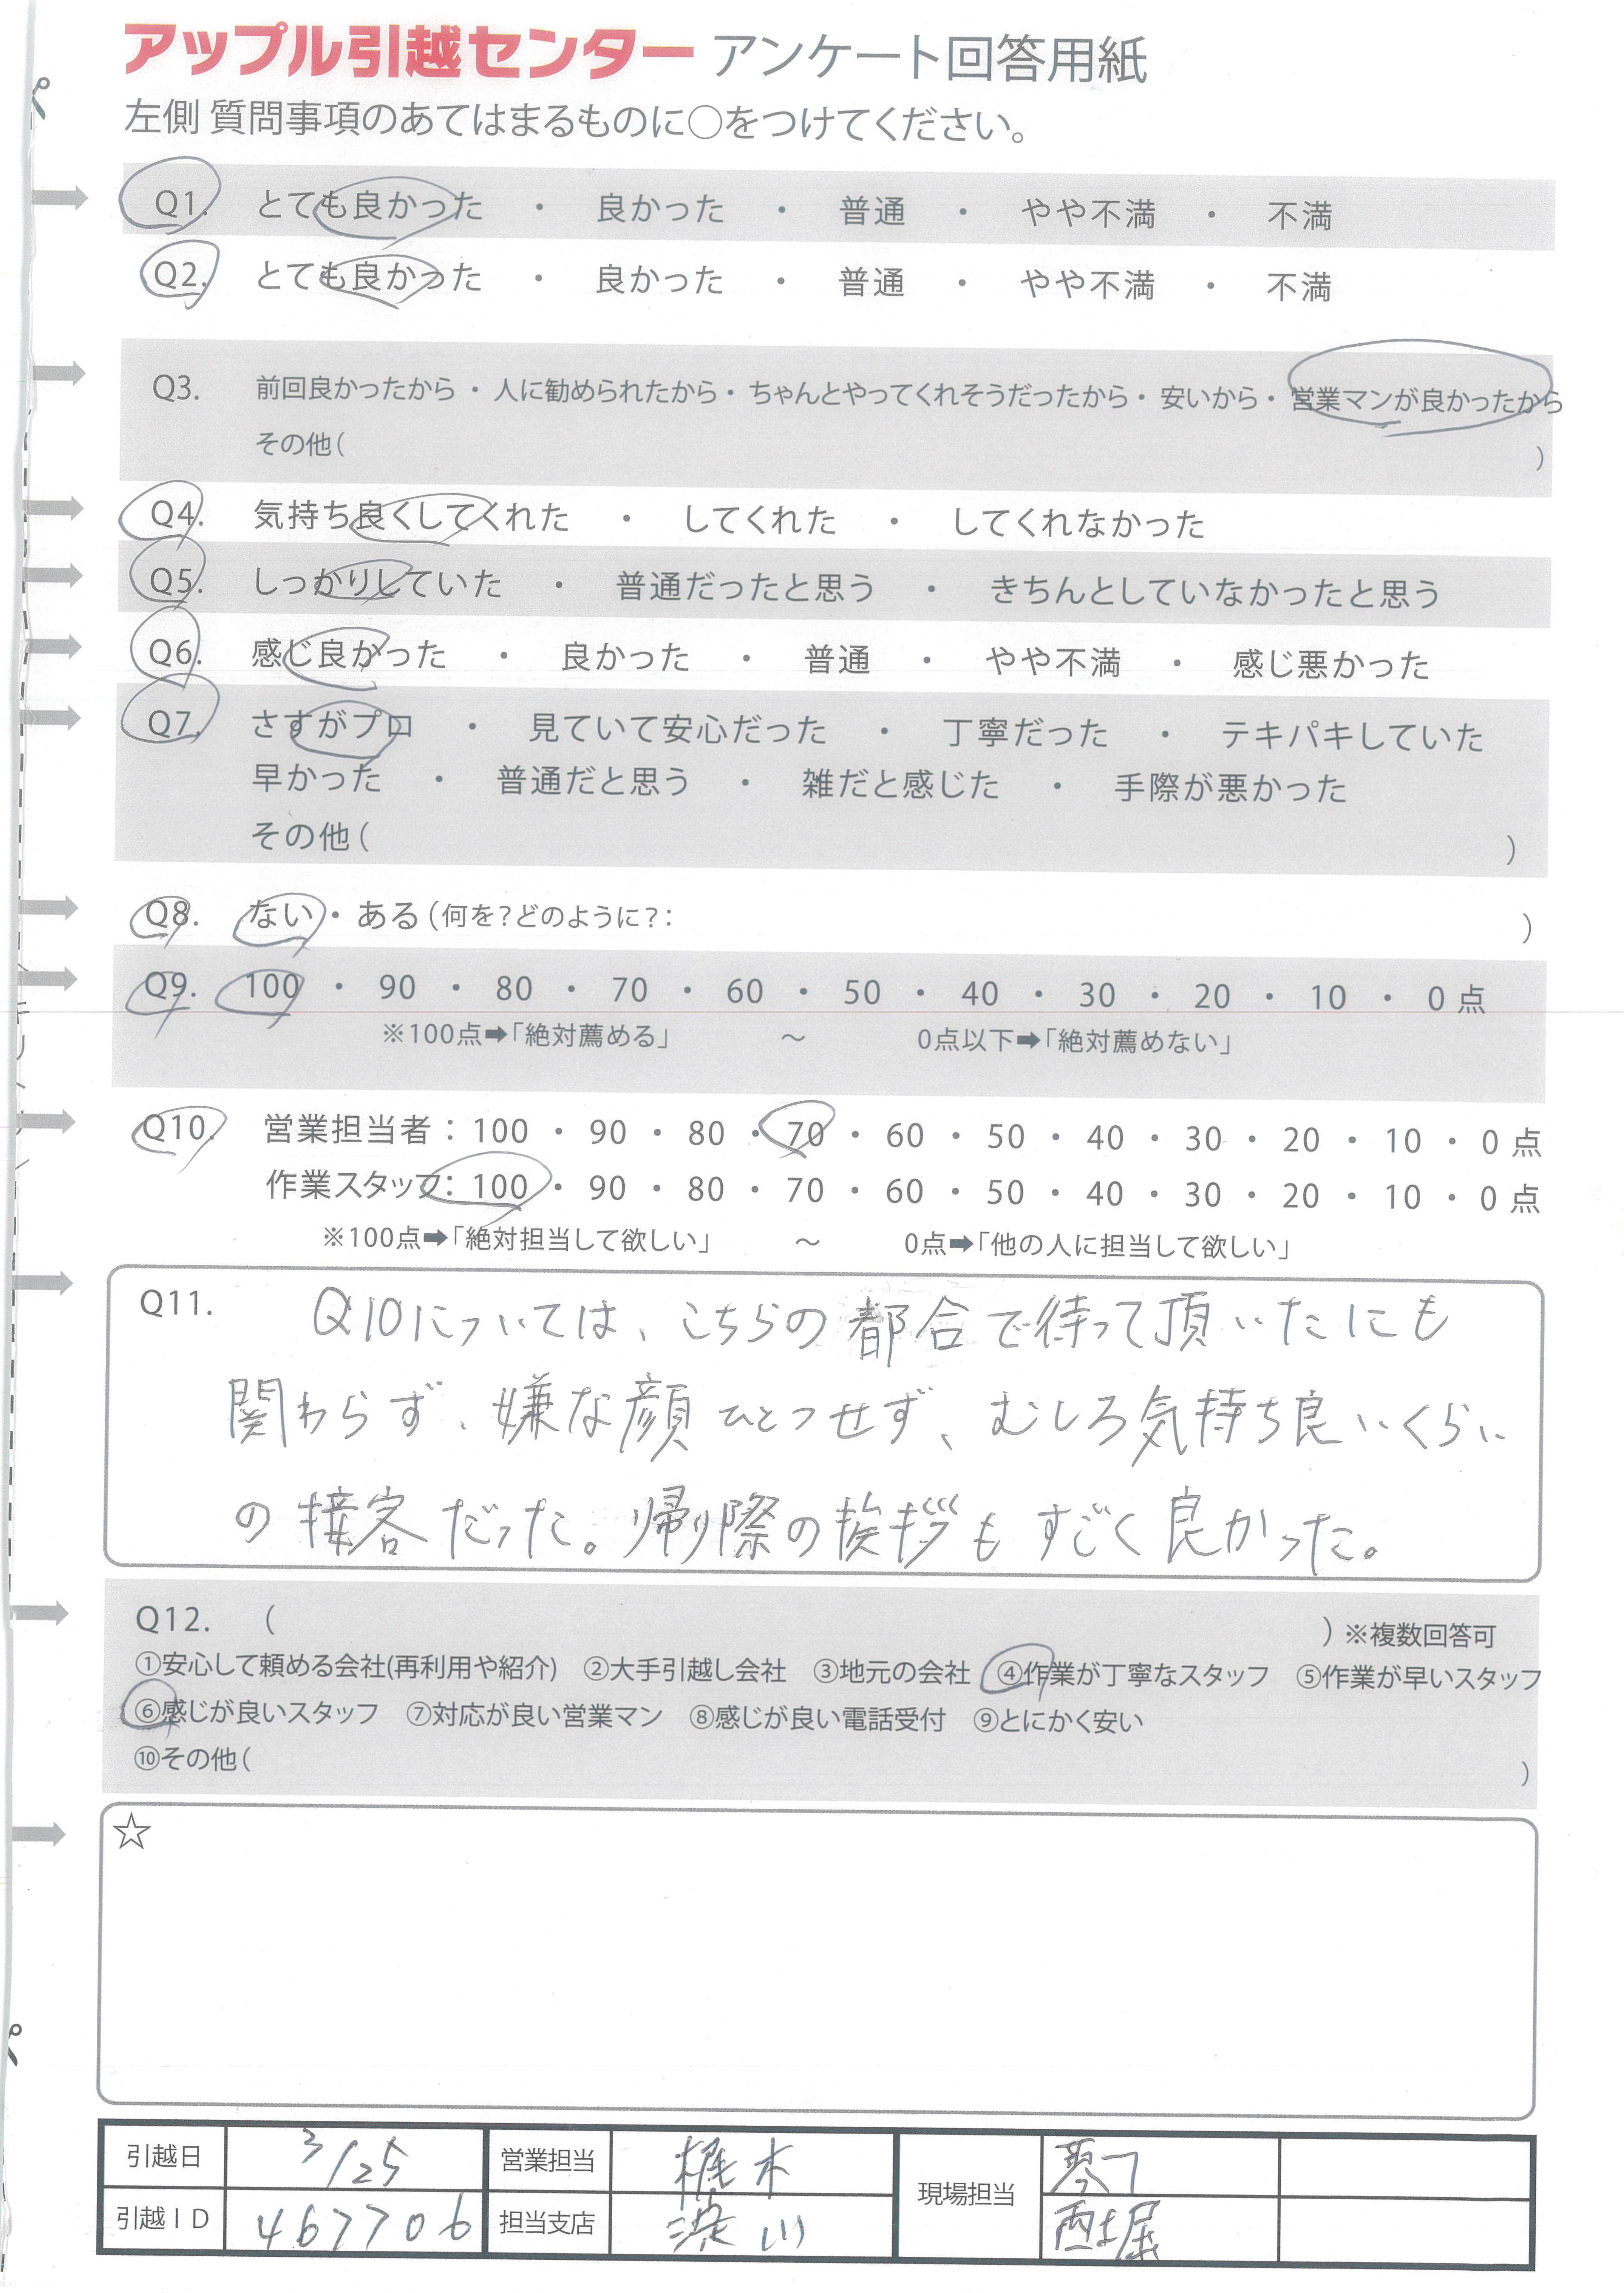 アップル引越センター アンケート回答用紙
左側 質問事項のあてはまるものに○をつけてください。
Q1. とても良かった ・ 良かった ・ 普通 ・ やや不満 ・ 不満
Q2. とても良かった ・ 良かった ・ 普通 ・ やや不満 ・ 不満
Q3. 前回良かったから・人に勧められたから・ちゃんとやってくれそうだったから・安いから・営業マンが良かったから
その他( )
Q4. 気持ち良くしてくれた ・ してくれた ・ してくれなかった
Q5. しっかりしていた ・ 普通だったと思う ・ きちんとしていなかったと思う
Q6. 感じ良かった ・ 良かった ・ 普通 ・ やや不満 ・ 感じ悪かった
Q7. さすがプロ ・ 見ていて安心だった ・ 丁寧だった ・ テキパキしていた
早かった ・ 普通だと思う ・ 雑だと感じた ・ 手際が悪かった
その他( )
Q8. ない・ある(何を?どのように?: )
Q9. 100 ・ 90 ・ 80 ・ 70 ・ 60 ・ 50 ・ 40 ・ 30 ・ 20 ・ 10 ・ 0点
※100点➡「絶対薦める」 ～ 0点以下➡「絶対薦めない」
Q10. 営業担当者:100 ・ 90 ・ 80 ・ 70 ・ 60 ・ 50 ・ 40 ・ 30 ・ 20 ・ 10 ・ 0点
作業スタッフ:100 ・ 90 ・ 80 ・ 70 ・ 60 ・ 50 ・ 40 ・ 30 ・ 20 ・ 10 ・ 0点
※100点➡「絶対担当して欲しい」 ～ 0点➡「他の人に担当して欲しい」
Q11. Q10については、こちらの都合で待って頂いたにも
関わらず、嫌な顔ひとつせず、むしろ気持ち良いくらい
の接客だった。帰り際の挨拶もすごく良かった。
Q12. ( )※複数回答可
①安心して頼める会社(再利用や紹介) ②大手引越し会社 ③地元の会社 ④作業が丁寧なスタッフ ⑤作業が早いスタッフ
⑥感じが良いスタッフ ⑦対応が良い営業マン ⑧感じが良い電話受付 ⑨とにかく安い
⑩その他( )
☆
引越日 3/25 営業担当 梶木 現場担当
引越ID 467706 担当支店 西堀